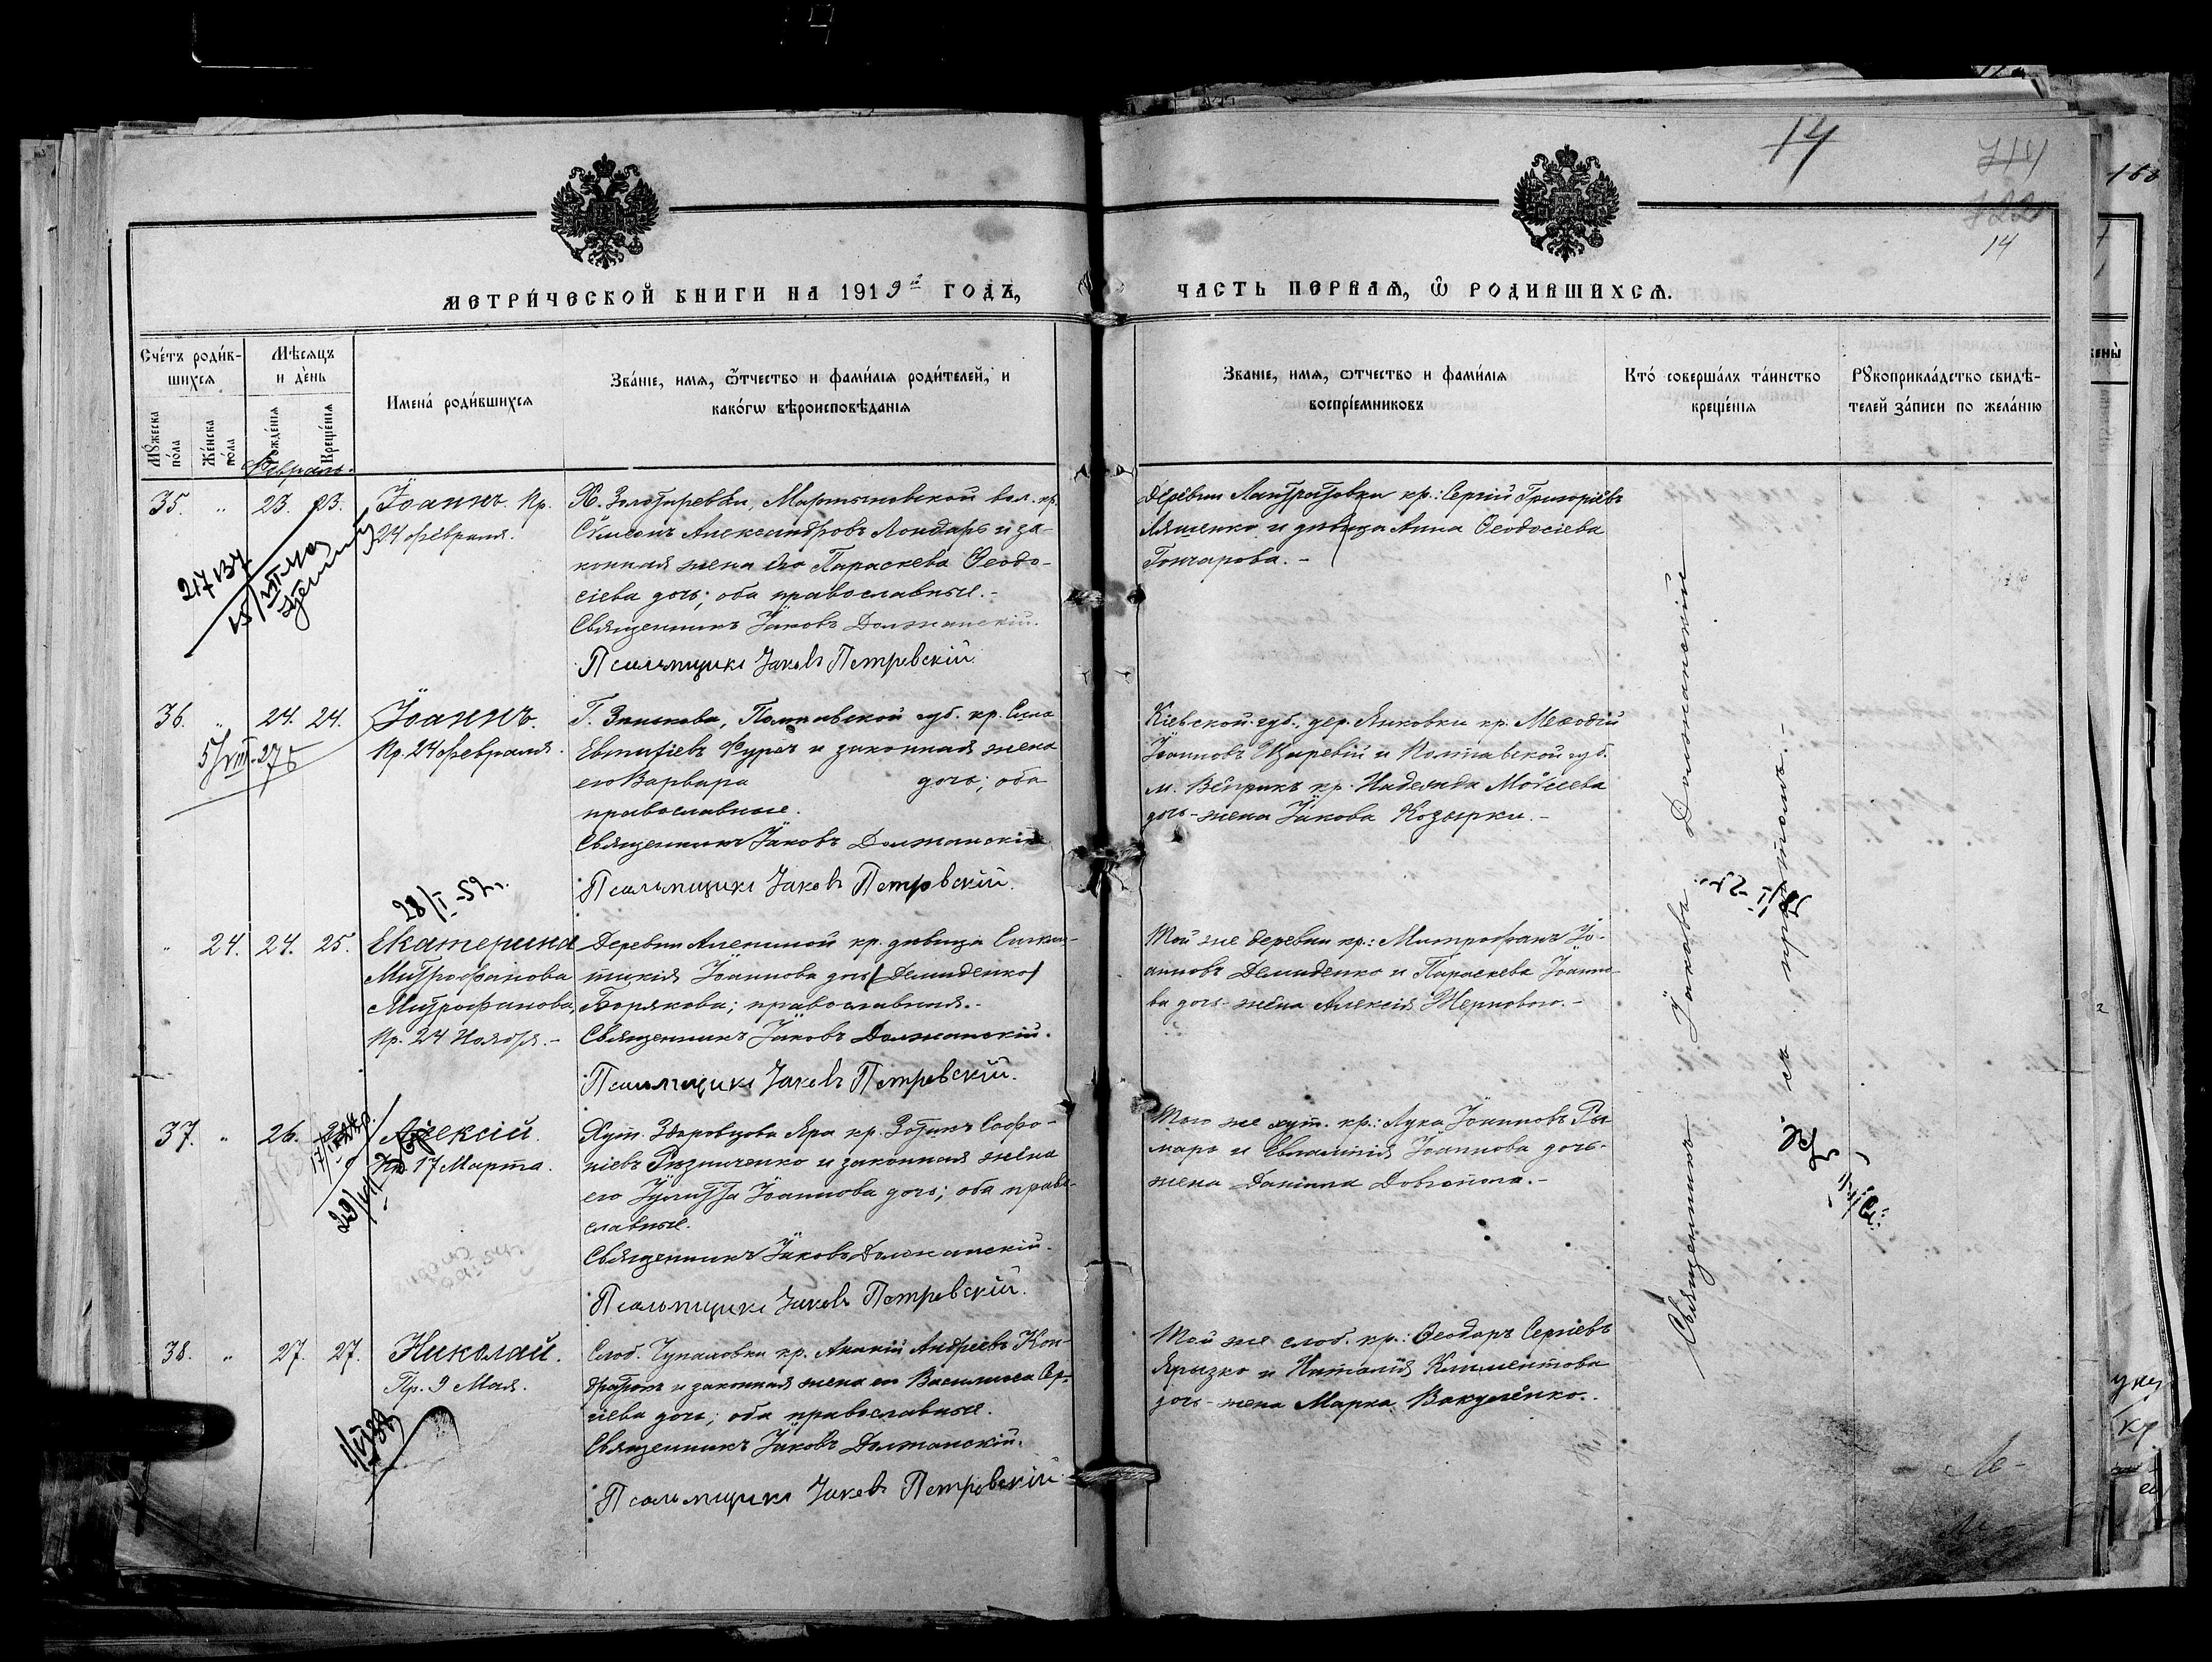 14
14
МЕТРИ́ЧЕСКОЙ КНИГИ НА 1919й ГОДЪ,
ЧАСТЬ ПЕРВАЯ, Ѡ РОДИВШИХСЯ.
Сче́тъ роди́в-
шихся
Мꙋжеска по́ла
Же́нска по́ла
Мѣсяцъ
и де́нь
Рожде́нія
Креще́нія
Имена́ роди́вшихся
Зва́ніе, имя, ѿтчество и фами́лія роди́телей, и
како́гѡ вѣроисповѣ́данія
Званіе, имя, ѿтчество и фами́лія
воспріе́мниковъ
Кто́ соверша́лъ та́инство
креще́нія
Рꙋкоприкла́дство свидѣ́-
телей за́писи по жела́нію
Февраль.
35. „ 23. 23. Іоаннъ. Пр.
24 февраля.
Х. Золотаревки, Мартыновской вол. кр.
Сѵмеонъ Александровъ Лондарь и за-
конная жена его Параскева Ѳеодо-
сіева дочь; оба православные.-
Священникъ Іаковъ Должанскій.
Псаломщикъ Іаковъ Петровскій.
Деревни кр.: Сергій Григоріевъ
Ляшенко и дѣвица Анна Ѳеодосіева
Гончарова.-
36. „ 24. 24. Іоаннъ.
Пр. 24 февраля.
Г. Зинькова, Полтавской губ. кр. Сила
Евтихіевъ и законная жена
его Варвара дочь; оба
православные.
Священникъ Іаковъ Должанскій
Псаломщикъ Іаковъ Петровскій.
Кіевской губ., дер. Янковки кр. Меѳодій
Іоанновъ и Полтавской губ.
м. Веприкъ кр. Надежда Моѵсеева
дочь-жена Іакова Козырки.-
28/I-52г.
„ 24. 24. 25. Екатерина
Митрофанова
Митрофанова.
Пр. 24 Ноября.-
Деревни Алениной кр. дѣвица Синкли-
тикія Іоаннова дочь (Демиденко)
Борякова; православная.-
Священникъ Іаковъ Должанскій.
Псаломщикъ Іаковъ Петровскій.
Той же деревни кр.: Митрофанъ Іо-
анновъ Демиденко и Параскева Іоанно-
ва дочь-жена Алексія Жернового.-
37. „ 26. Алексій.
Пр. 17 Марта.
Хут. Здоровцова Яра кр. Зотикъ Софо-
ніевъ Рязниченко и законная жена
его Іулитта Іоаннова дочь; оба право-
славные.
Священникъ Іаковъ Должанскій.
Псаломщикъ Іаковъ Петровскій.
Того же хут. кр.: Лука Іоанновъ Ры-
марь и Евлампія Іоаннова дочь-
жена Даніила
38. „ 27. 27. Николай.
Пр. 9 Мая.
Слоб. Чупаловки кр. Акакій Андреевъ Кон-
и законная жена его Василиса Сер-
гіева дочь; оба православные.
Священникъ Іаковъ Должанскій.
Псаломщикъ Іаковъ Петровскій.
Той же слоб. кр.: Ѳеодоръ Сергіевъ
Ярызко и Наталія Климентова
дочь-жена Марка Вакуленко.
Священникъ Іаковъ Должанскій
съ причтомъ.-